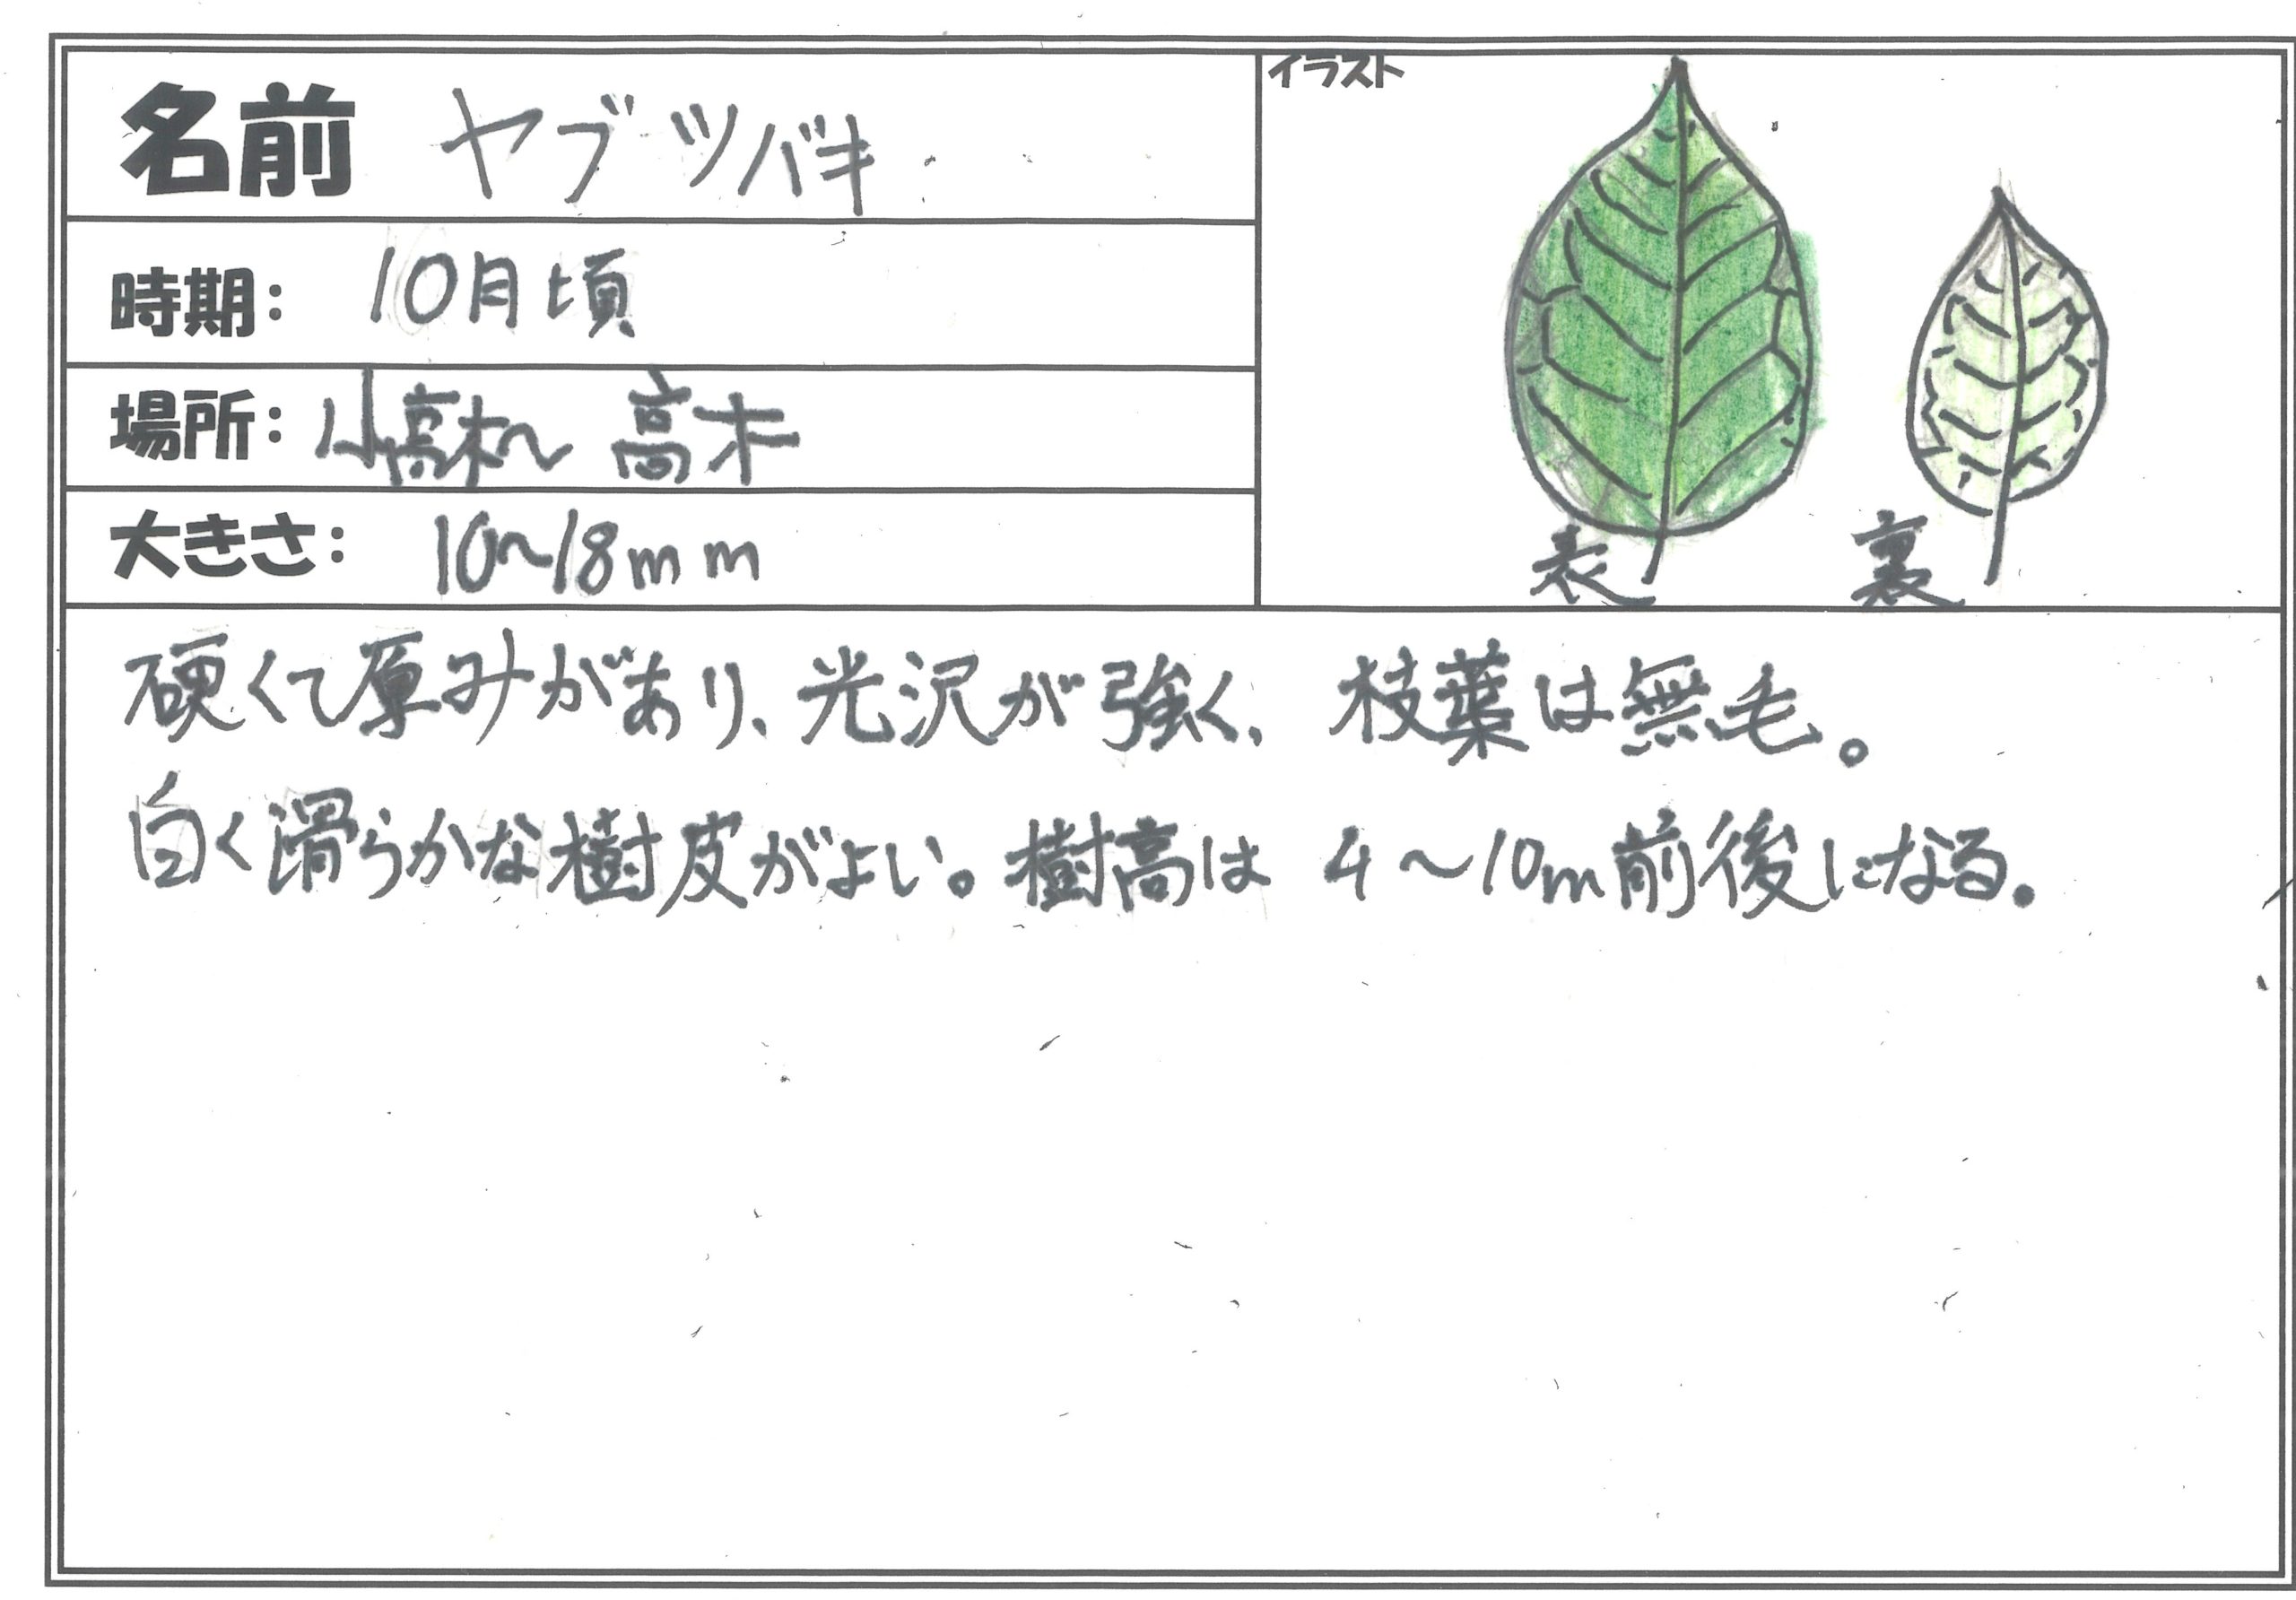 名前 ヤブツバキ
イラスト
時期: 10月頃
場所: 小高木〜 高木
大きさ: 10〜18mm
表 裏
硬くて厚みがあり、光沢が強く、枝葉は無毛。
白く滑らかな樹皮がよい。樹高は 4〜10m前後になる。